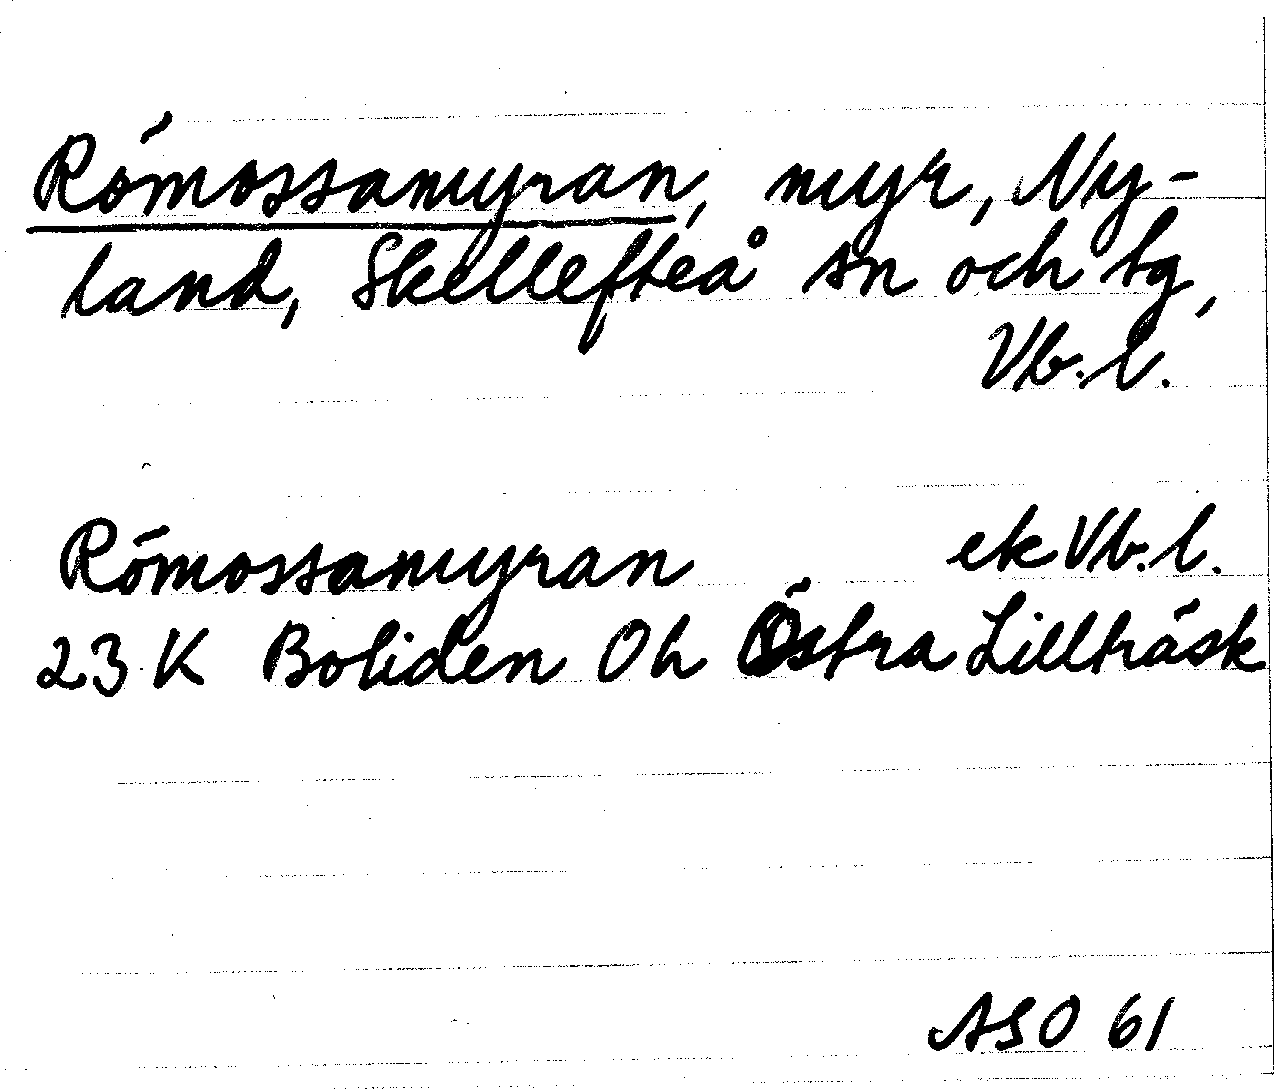 Römossamyran, myr, Ny-
land, Skellefteå sn och tg,
Vb.l.
Römossamyran ek Vb.l.
23 K Boliden Oh Östra Lillträsk
ASO 61